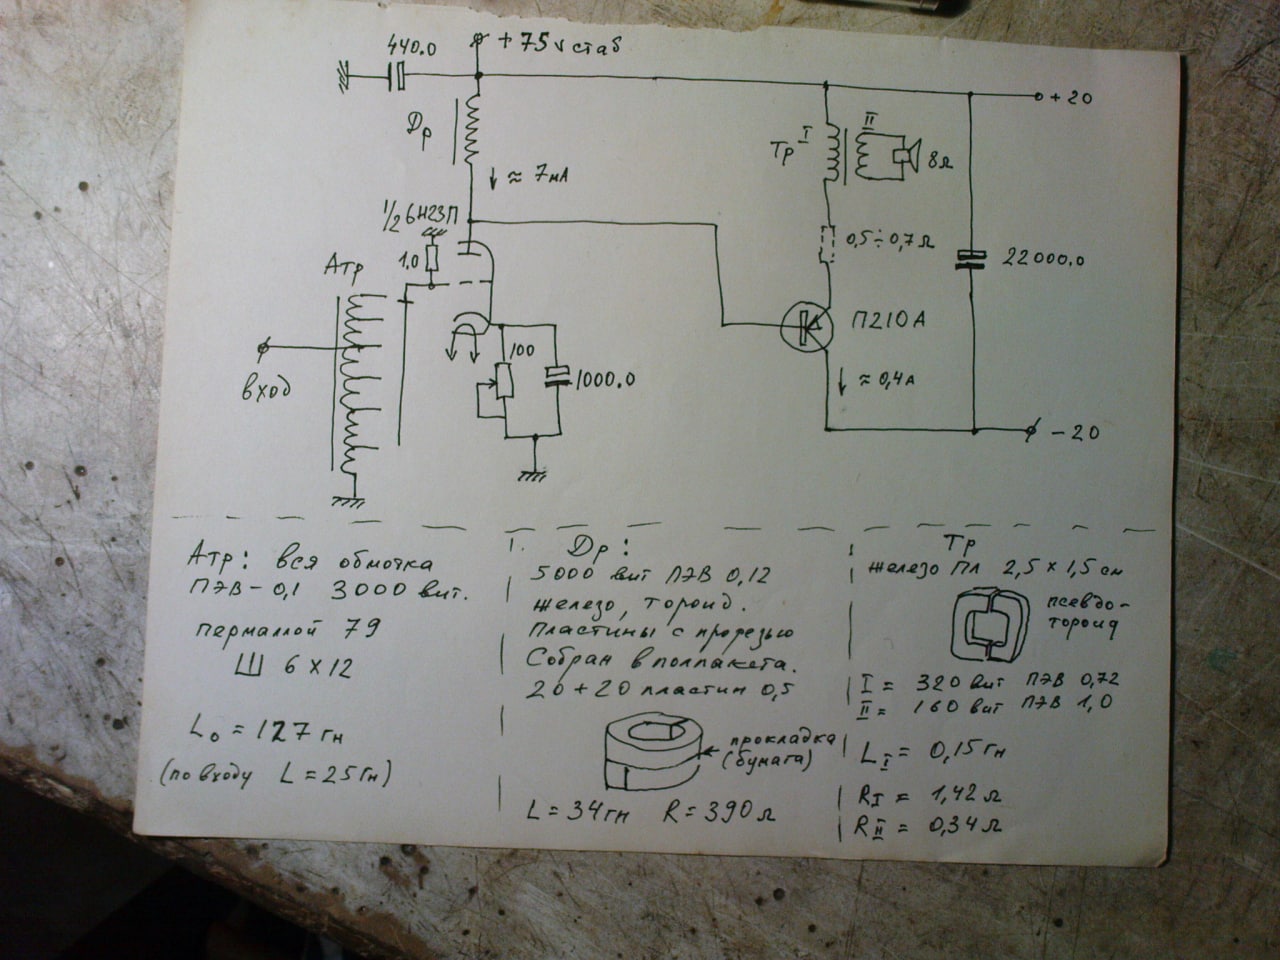 440.0
+75 v стаб
+20
Др
Тр
I
II
8Ω
≈ 7мА
1/2 6Н23П
1.0
0,5÷0,7Ω
22000.0
Атр
П210А
вход
100
1000.0
≈ 0,4А
-20
Атр: вся обмотка
ПЭВ-0,1 3000 вит.
пермаллой 79
Ш 6×12
L₀ = 127 гн
(по входу L = 25 гн)
Др:
5000 вит ПЭВ 0,12
железо, тороид.
Пластины с прорезью
Собран в полпакета.
20+20 пластин 0,5
прокладка
(бумага)
L = 34 гн R = 390 Ω
Тр
железо Пл 2,5×1,5 см
псевдо-
тороид
I = 320 вит ПЭВ 0,72
II = 160 вит ПЭВ 1,0
L I = 0,15 Гн
R I = 1,42 Ω
R II = 0,34 Ω